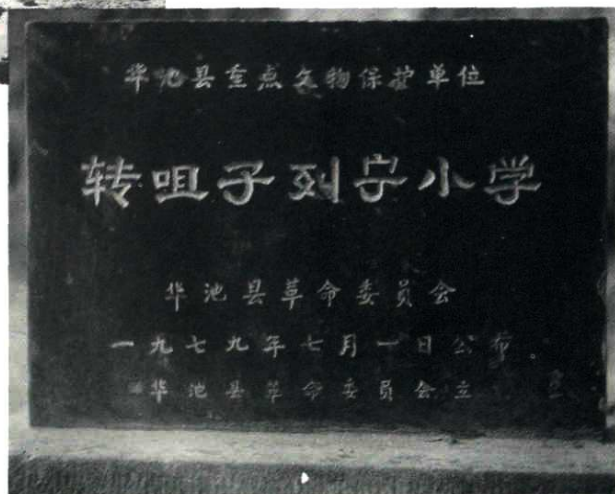 华池县重点文物保护单位
转咀子列宁小学
华池县革命委员会
一九七九年七月一日公布
华池县革命委员会立